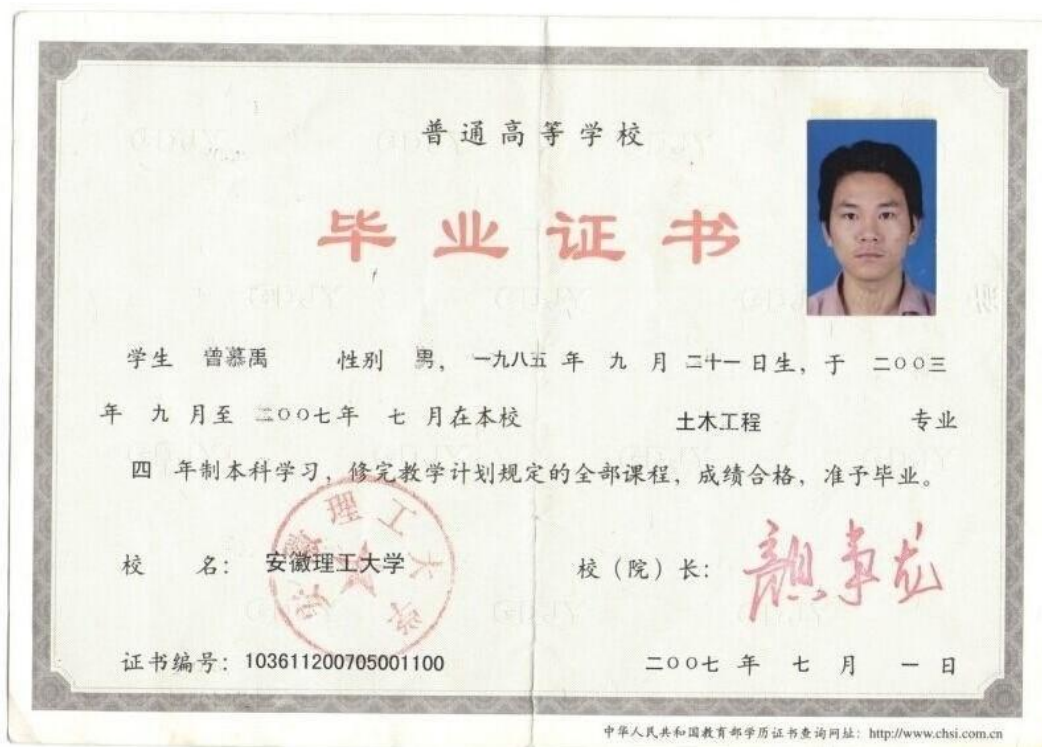 普通高等学校
毕业证书
学生 曾慕禹 性别 男，一九八五 年 九 月 二十一 日生，于 二〇〇三
年 九 月至 二〇〇七年 七 月在本校 土木工程 专业
四 年制本科学习，修完教学计划规定的全部课程，成绩合格，准予毕业。
校 名：安徽理工大学 校（院）长：
安徽理工大学
证书编号：103611200705001100 二〇〇七 年 七 月 一 日
中华人民共和国教育部学历证书查询网址：http://www.chsi.com.cn